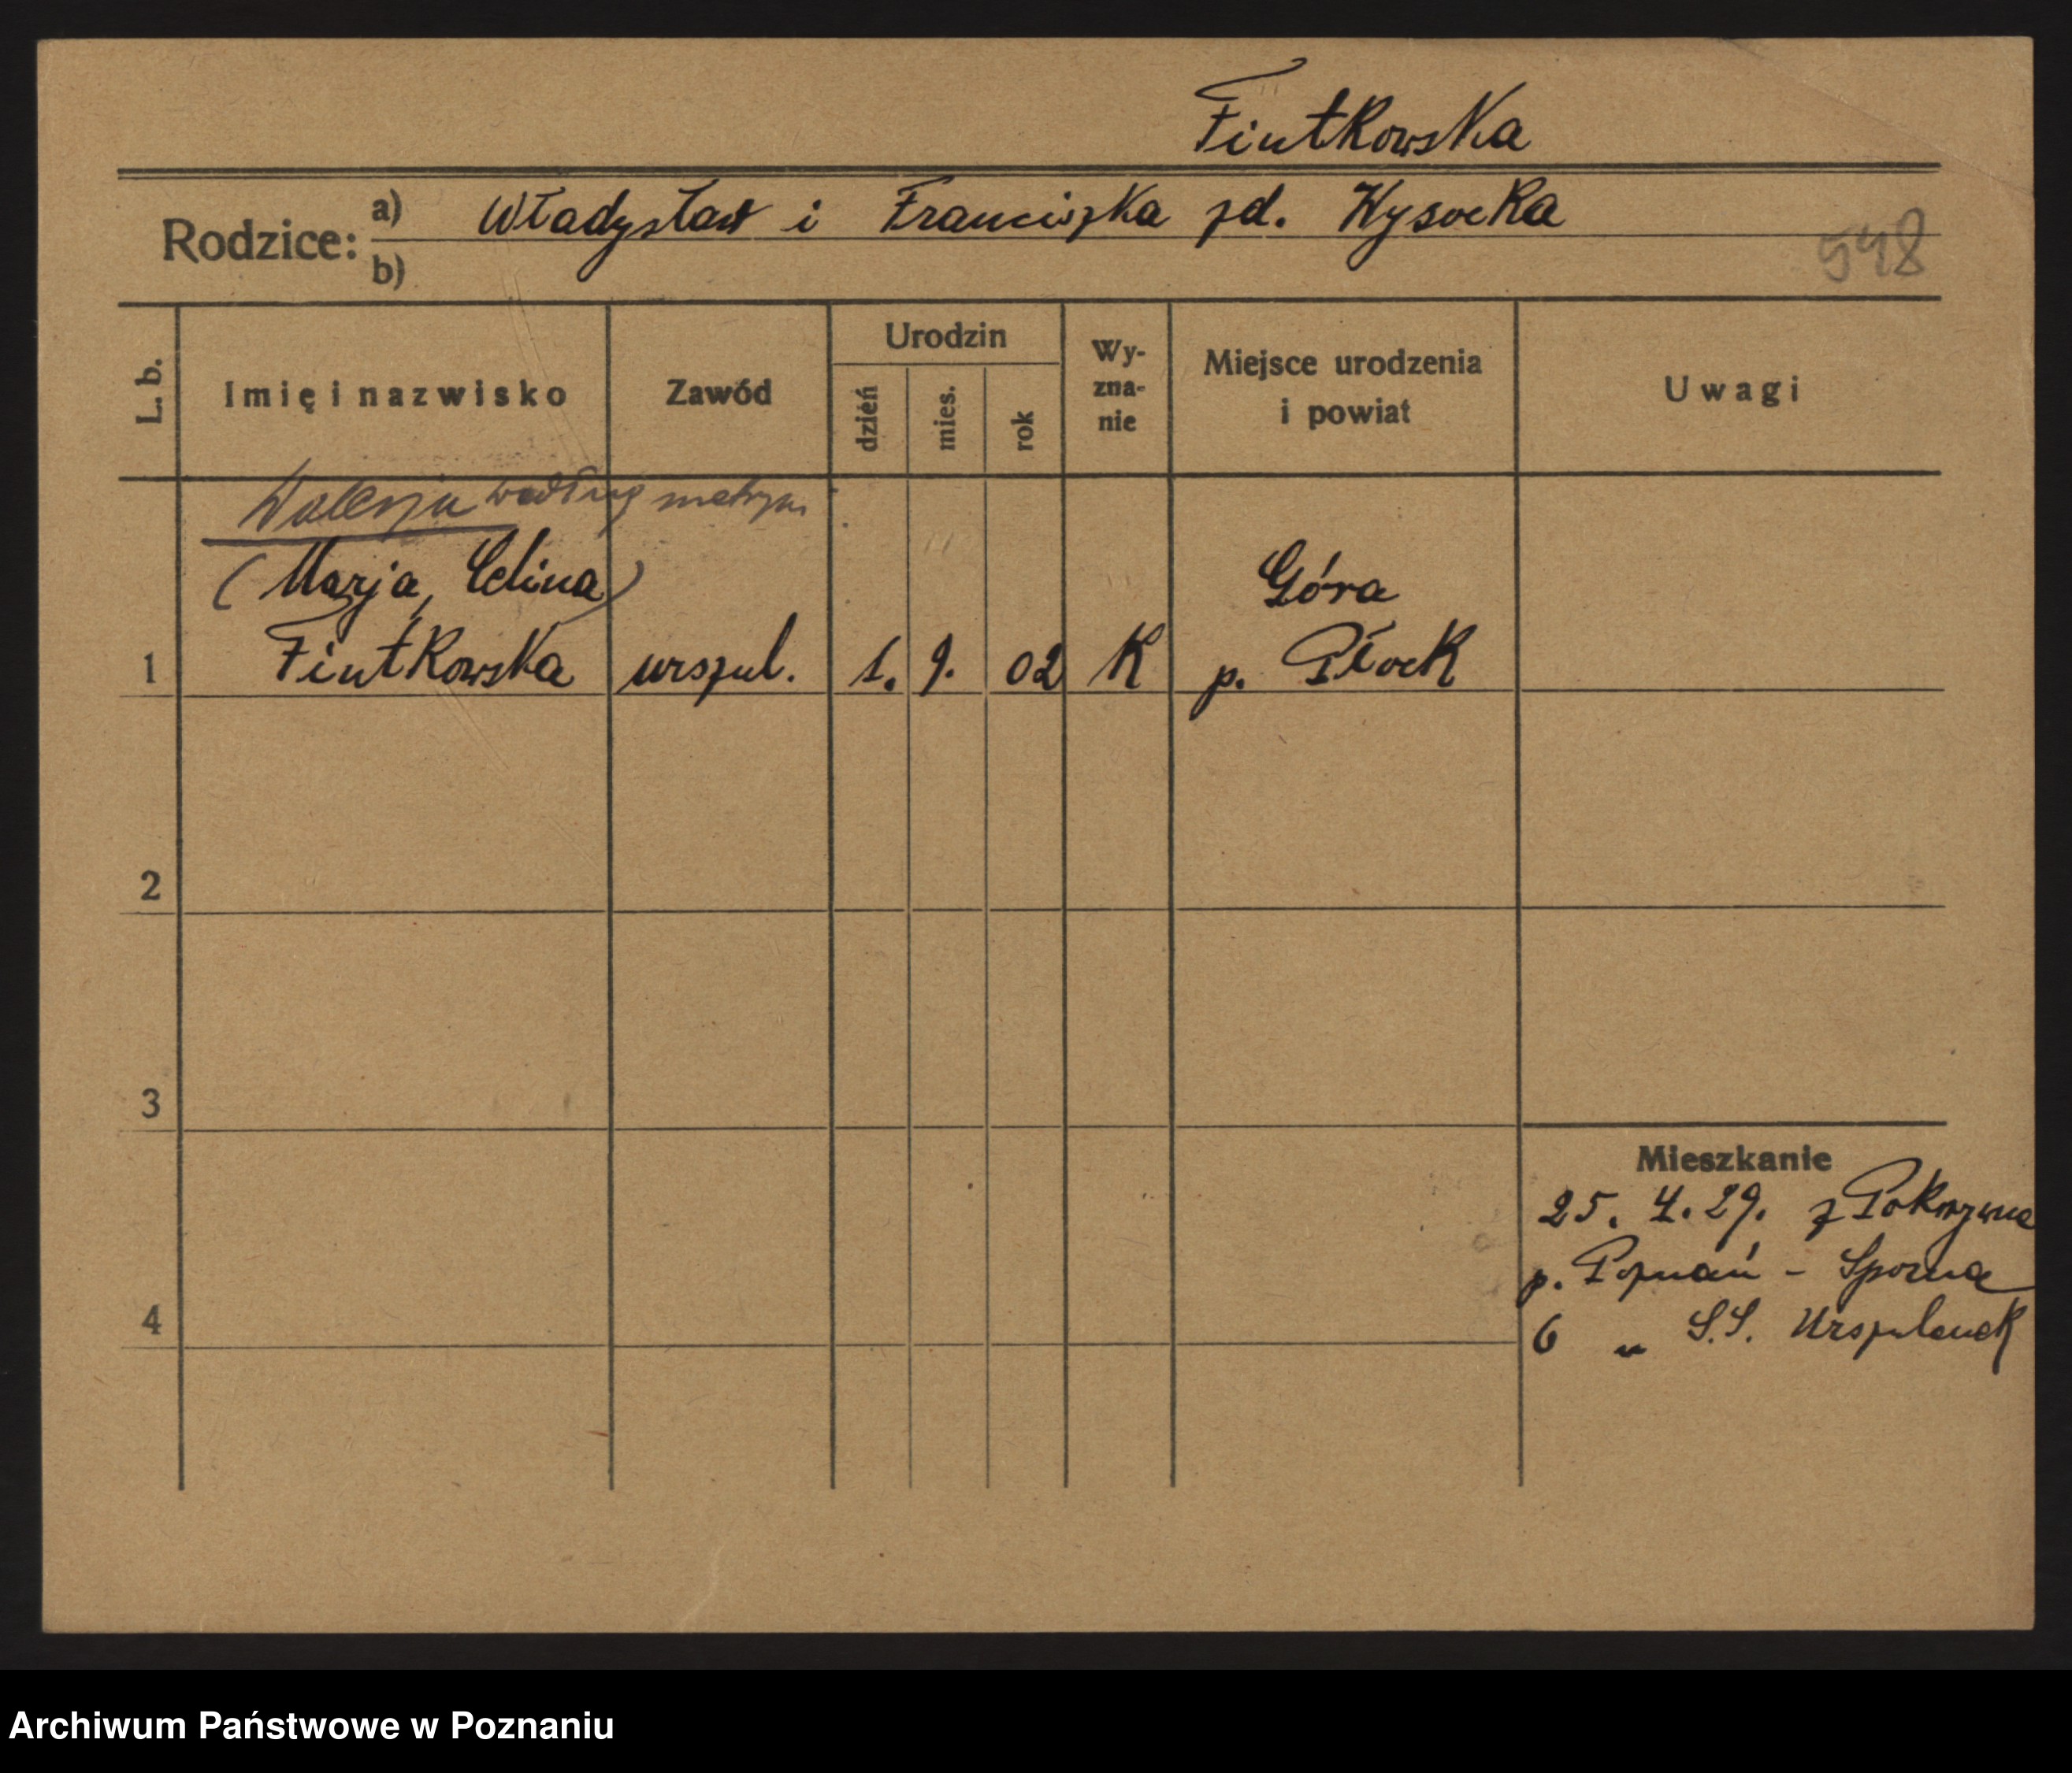 Fiutkowska
Rodzice: a) Władysław i Franciszka zd. Wysocka
b)
548
L. b. Imię i nazwisko Zawód Urodzin dzień mies. rok Wy-zna-nie Miejsce urodzenia i powiat Uwagi
Walerja według metryki
(Marja, Celina) Góra
1 Fiutkowska urszul. 1. 9. 02 K p. Płock
2
3
Mieszkanie
25. 4. 29. z Pokrzywna
p. Poznań - Sporna
4
6 u S.S. Urszulanek
Archiwum Państwowe w Poznaniu